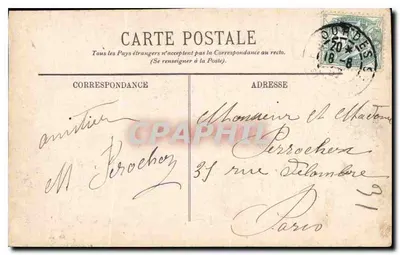 CARTE POSTALE
Tous les Pays étrangers n'acceptent pas la Correspondance au recto.
(Se renseigner à la Poste).
CORRESPONDANCE
ADRESSE
LOURDES
20
18-8
CPAPHIL
amitiés
M Perochon
Monsieur et Madame
Perrochon
35 rue
Paris
31